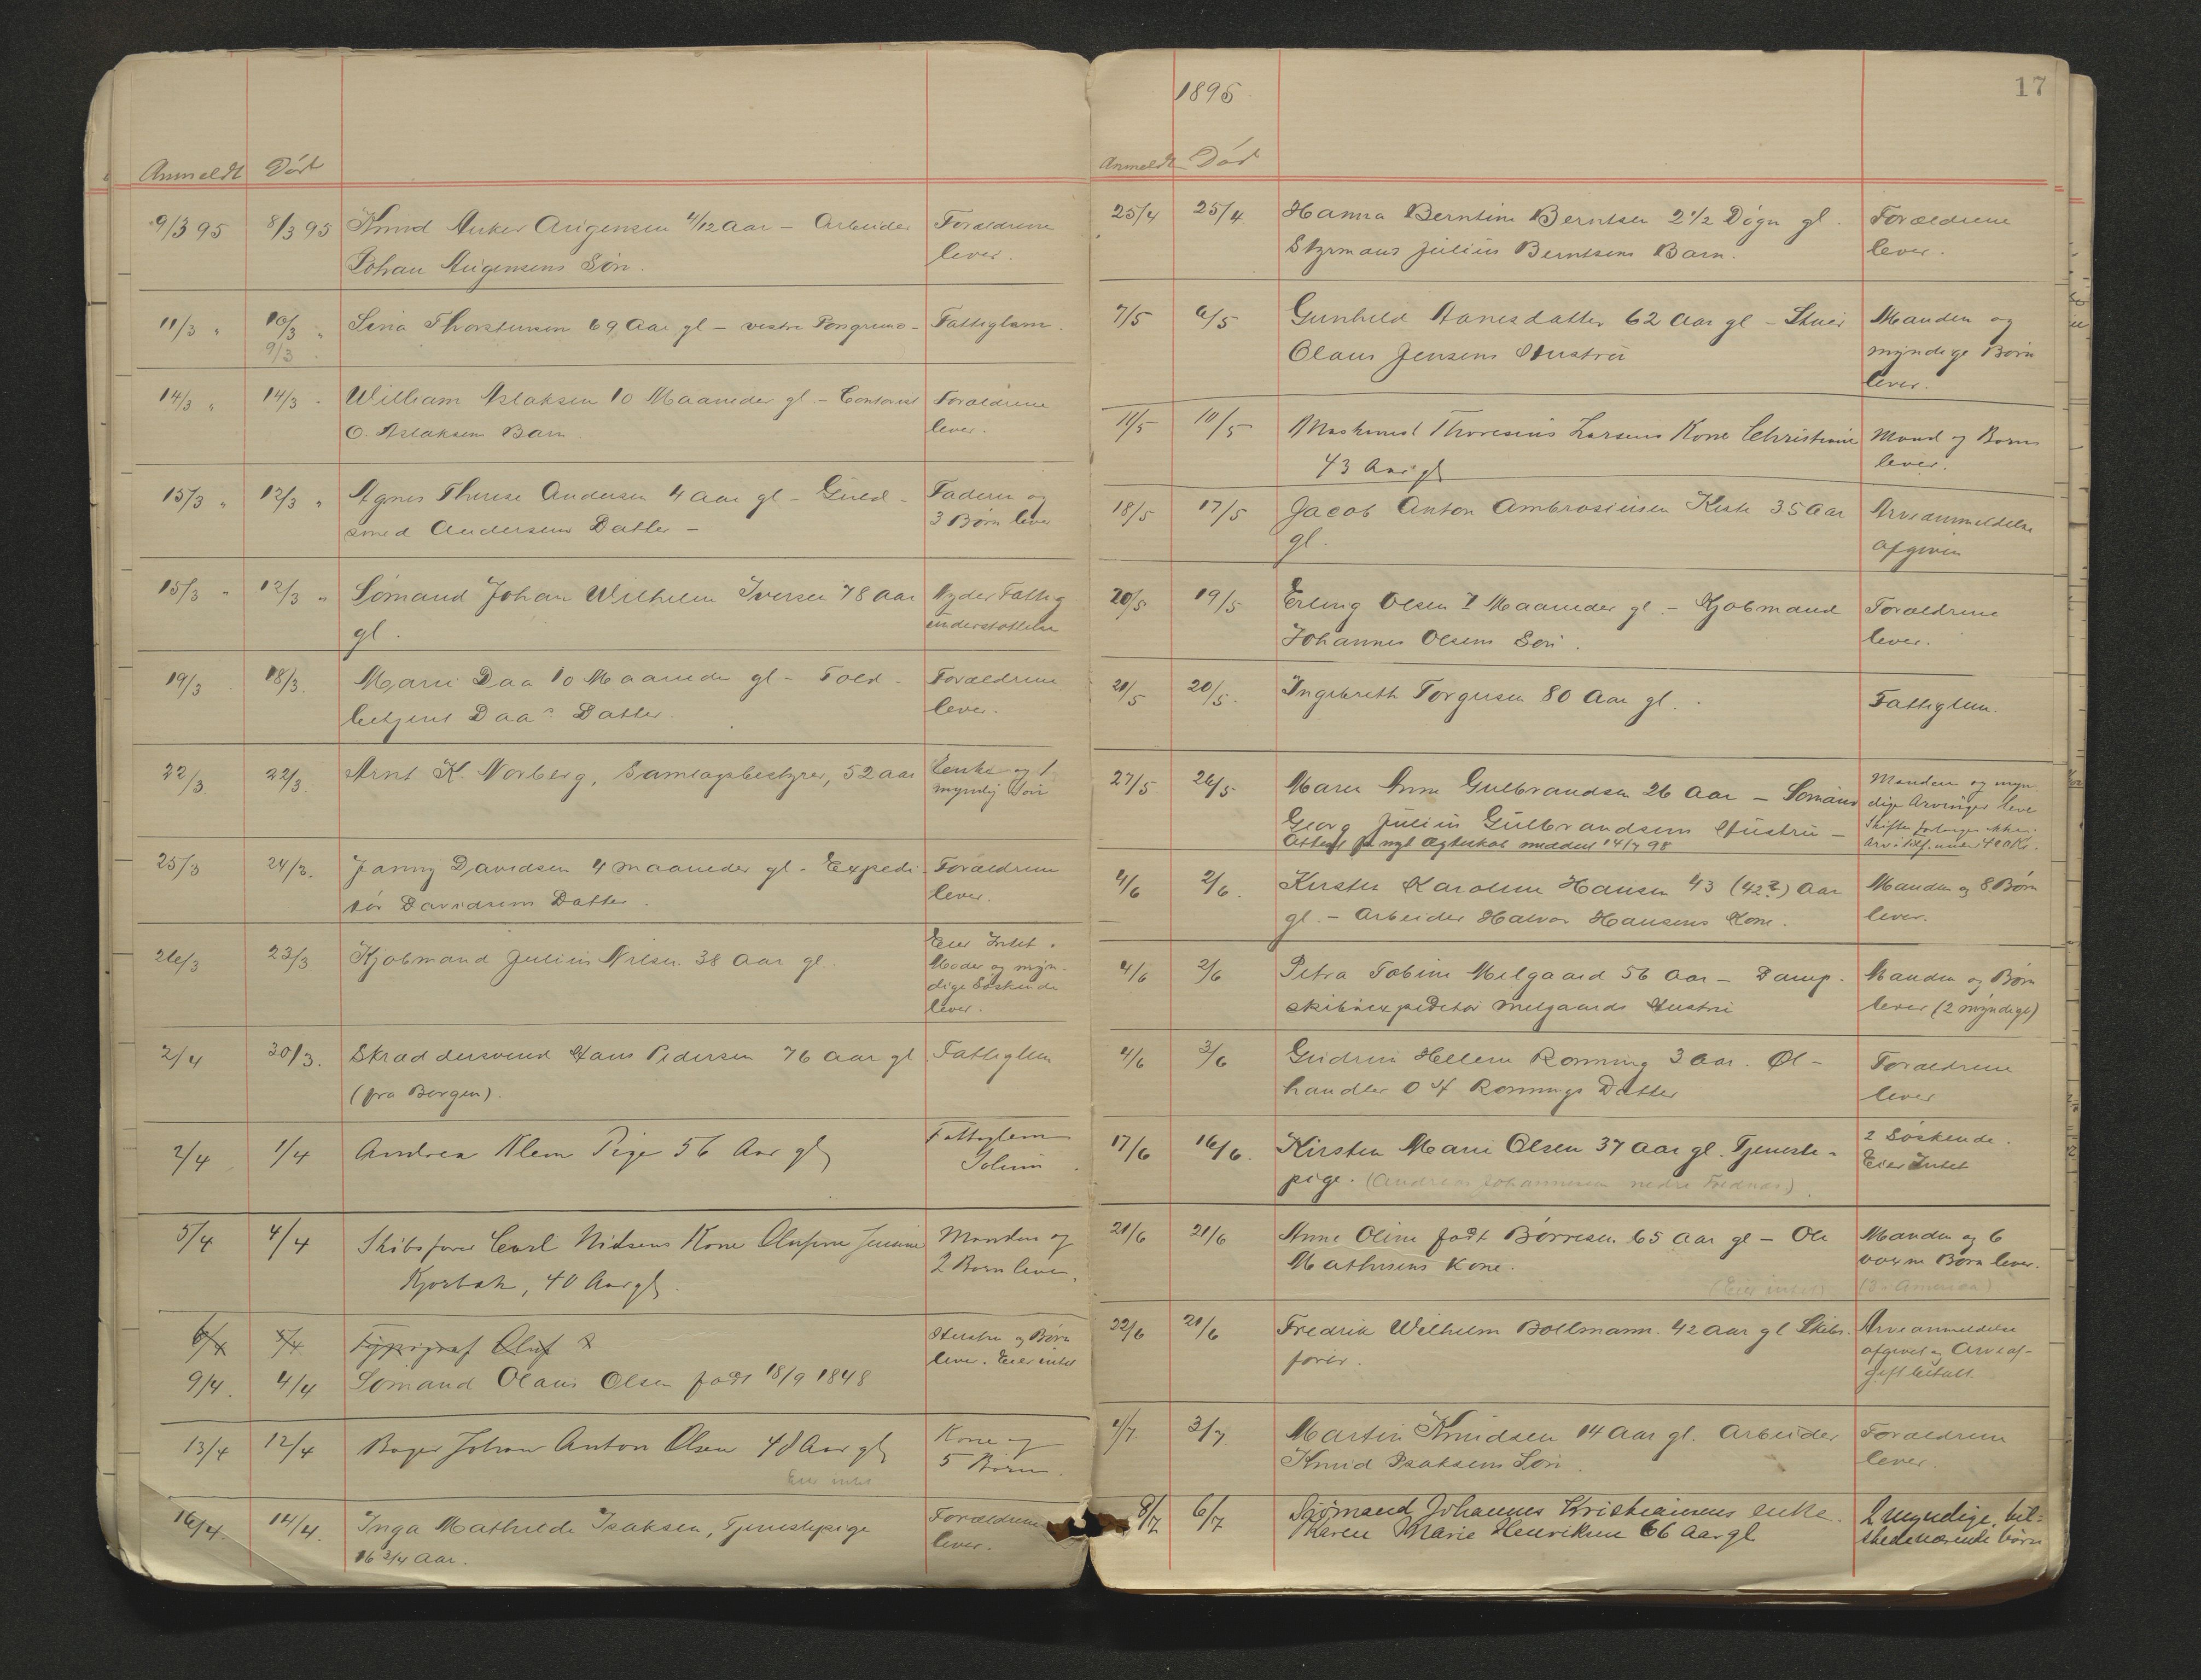 Anmeldt Död
9/3 95 8/3 95 Knud Anker Augensen 4/12 Aar - Arbeider Forældrene
Johan Augensens Sön. lever.
11/3 " 10/3 " Sina Thorstensen 69 Aar gl - vestre Porsgrund - Fattiglem.
9/3
14/3 " 14/3 - William Aslaksen 10 Maaneder gl. - Contorist Forældrene
O. Aslaksens Barn. lever.
15/3 " 12/3 " Agnes Therese Andersen 4 aar gl - Guld- Faderen og
smed Andersens Datter - 3 Børn lever
15/3 " 12/3 " Sömand Johan Wilhelm Iversen 78 aar Nyder Fattig
gl. understøttelse
19/3 18/3. Marie Daa 10 Maaneder gl - Told- Forældrene
betjent Daas Datter. lever.
22/3 22/3. Arnt K. Norberg, Samlagsbestyrer, 52 aar Enke og 1
myndig Sön
25/3 24/3. Fanny Davidsen 4 maaneder gl - Expedi- Forældrene
tör Davidsens Datter. lever.
26/3 23/3 Kjøbmand Julius Nilsen 38 Aar gl. Eier Intet.
Moder og myn-
dige Söskende
lever.
2/4 30/3. Skræddersvend Hans Pedersen 76 aar gl Fattiglem
(fra Bergen).
2/4 1/4 Andrea Klem Pige 56 Aar gl Fattiglem
Solum
5/4 4/4 Skibsfører Carl Nielsens Kone Olufine Jensine Manden og
Kjorbak, 40 Aar gl. 2 Børn lever.
6/4 5/4 Typograf Oluf Hustru og Børn
lever. Eier intet
9/4. 4/4 Sömand Olaus Olsen født 18/9 1848
13/4 12/4 Bager Johan Anton Olsen 48 Aar gl Kone og
Eier intet 5 Børn.
16/4. 14/4. Inga Mathilde Isaksen, Tjenestepige Forældrene
16 3/4 Aar. lever.
17
1895.
Anmeldt Död
25/4 25/4. Hanna Berntine Berntsen 2 1/2 Døgn gl. Forældrene
Styrmand Julius Berntsens Barn. lever.
7/5 6/5 Gunhild Aanesdatter 62 aar gl - Stuer Manden og
Olaus Jensens Hustru myndige Børn
lever.
11/5 10/5 Maskinist Thoresius Larsens Kone Christiane Mand og Børn
43 Aar gl lever.
18/5 17/5 Jacob Anton Ambrosiussen Kiste 35 aar Arveanmeldelse
gl. afgiven
20/5 19/5 Erling Olsen 7 Maaneder gl. - Kjøbmand Forældrene
Johannes Olsens Sön. lever.
21/5 20/5. Ingebreth Torgersen 80 Aar gl. Fattiglem.
27/5 26/5 Maren Anne Gulbrandsen 26 Aar - Sömand Manden og myn-
dige Arvinger leve
Georg Julius Gulbrandsens Hustru - Skifte forlanges ikke.
Attest p. nyt Ægteskab meddelt 14/7 98
4/6 2/6. Kirsten Karoline Hansen 43 (42?) Aar Manden og 8 Børn
gl. - Arbeider Halvor Hansens Kone. lever.
4/6 2/6 Petra Tobine Melgaard 56 Aar - Damp- Manden og Børn
skibsexpeditör Melgaards Hustru lever (2 myndige)
4/6 3/6 Gudrun Helene Rønning 3 Aar. Øl- Forældrene
handler O H Rønnings Datter lever
17/6 16/6. Kirsten Marie Olsen 37 Aar gl. Tjeneste- 2 Söskende.
pige. (Andreas Johannesen nedre Frednæs) Eier Intet
21/6 21/6 Anne Oline født Børresen 65 Aar gl - Ole Manden og 6
Mathisens Kone. voxne Børn lever.
(Eier intet) (3 i America)
22/6 21/6 Fredrik Wilhelm Bollmann. 42 Aar gl Skibs- Arveanmeldelse
fører. afgivet og Arveaf-
gift betalt.
4/7 3/7. Martin Knudsen 14 Aar gl. Arbeider Forældrene
Knud Isaksens Sön. lever.
8/7 6/7 Sjømand Johannes Kristiansens enke. 2 myndige, til-
Karen Marie Henriksen 66 Aar gl stedeværende børn